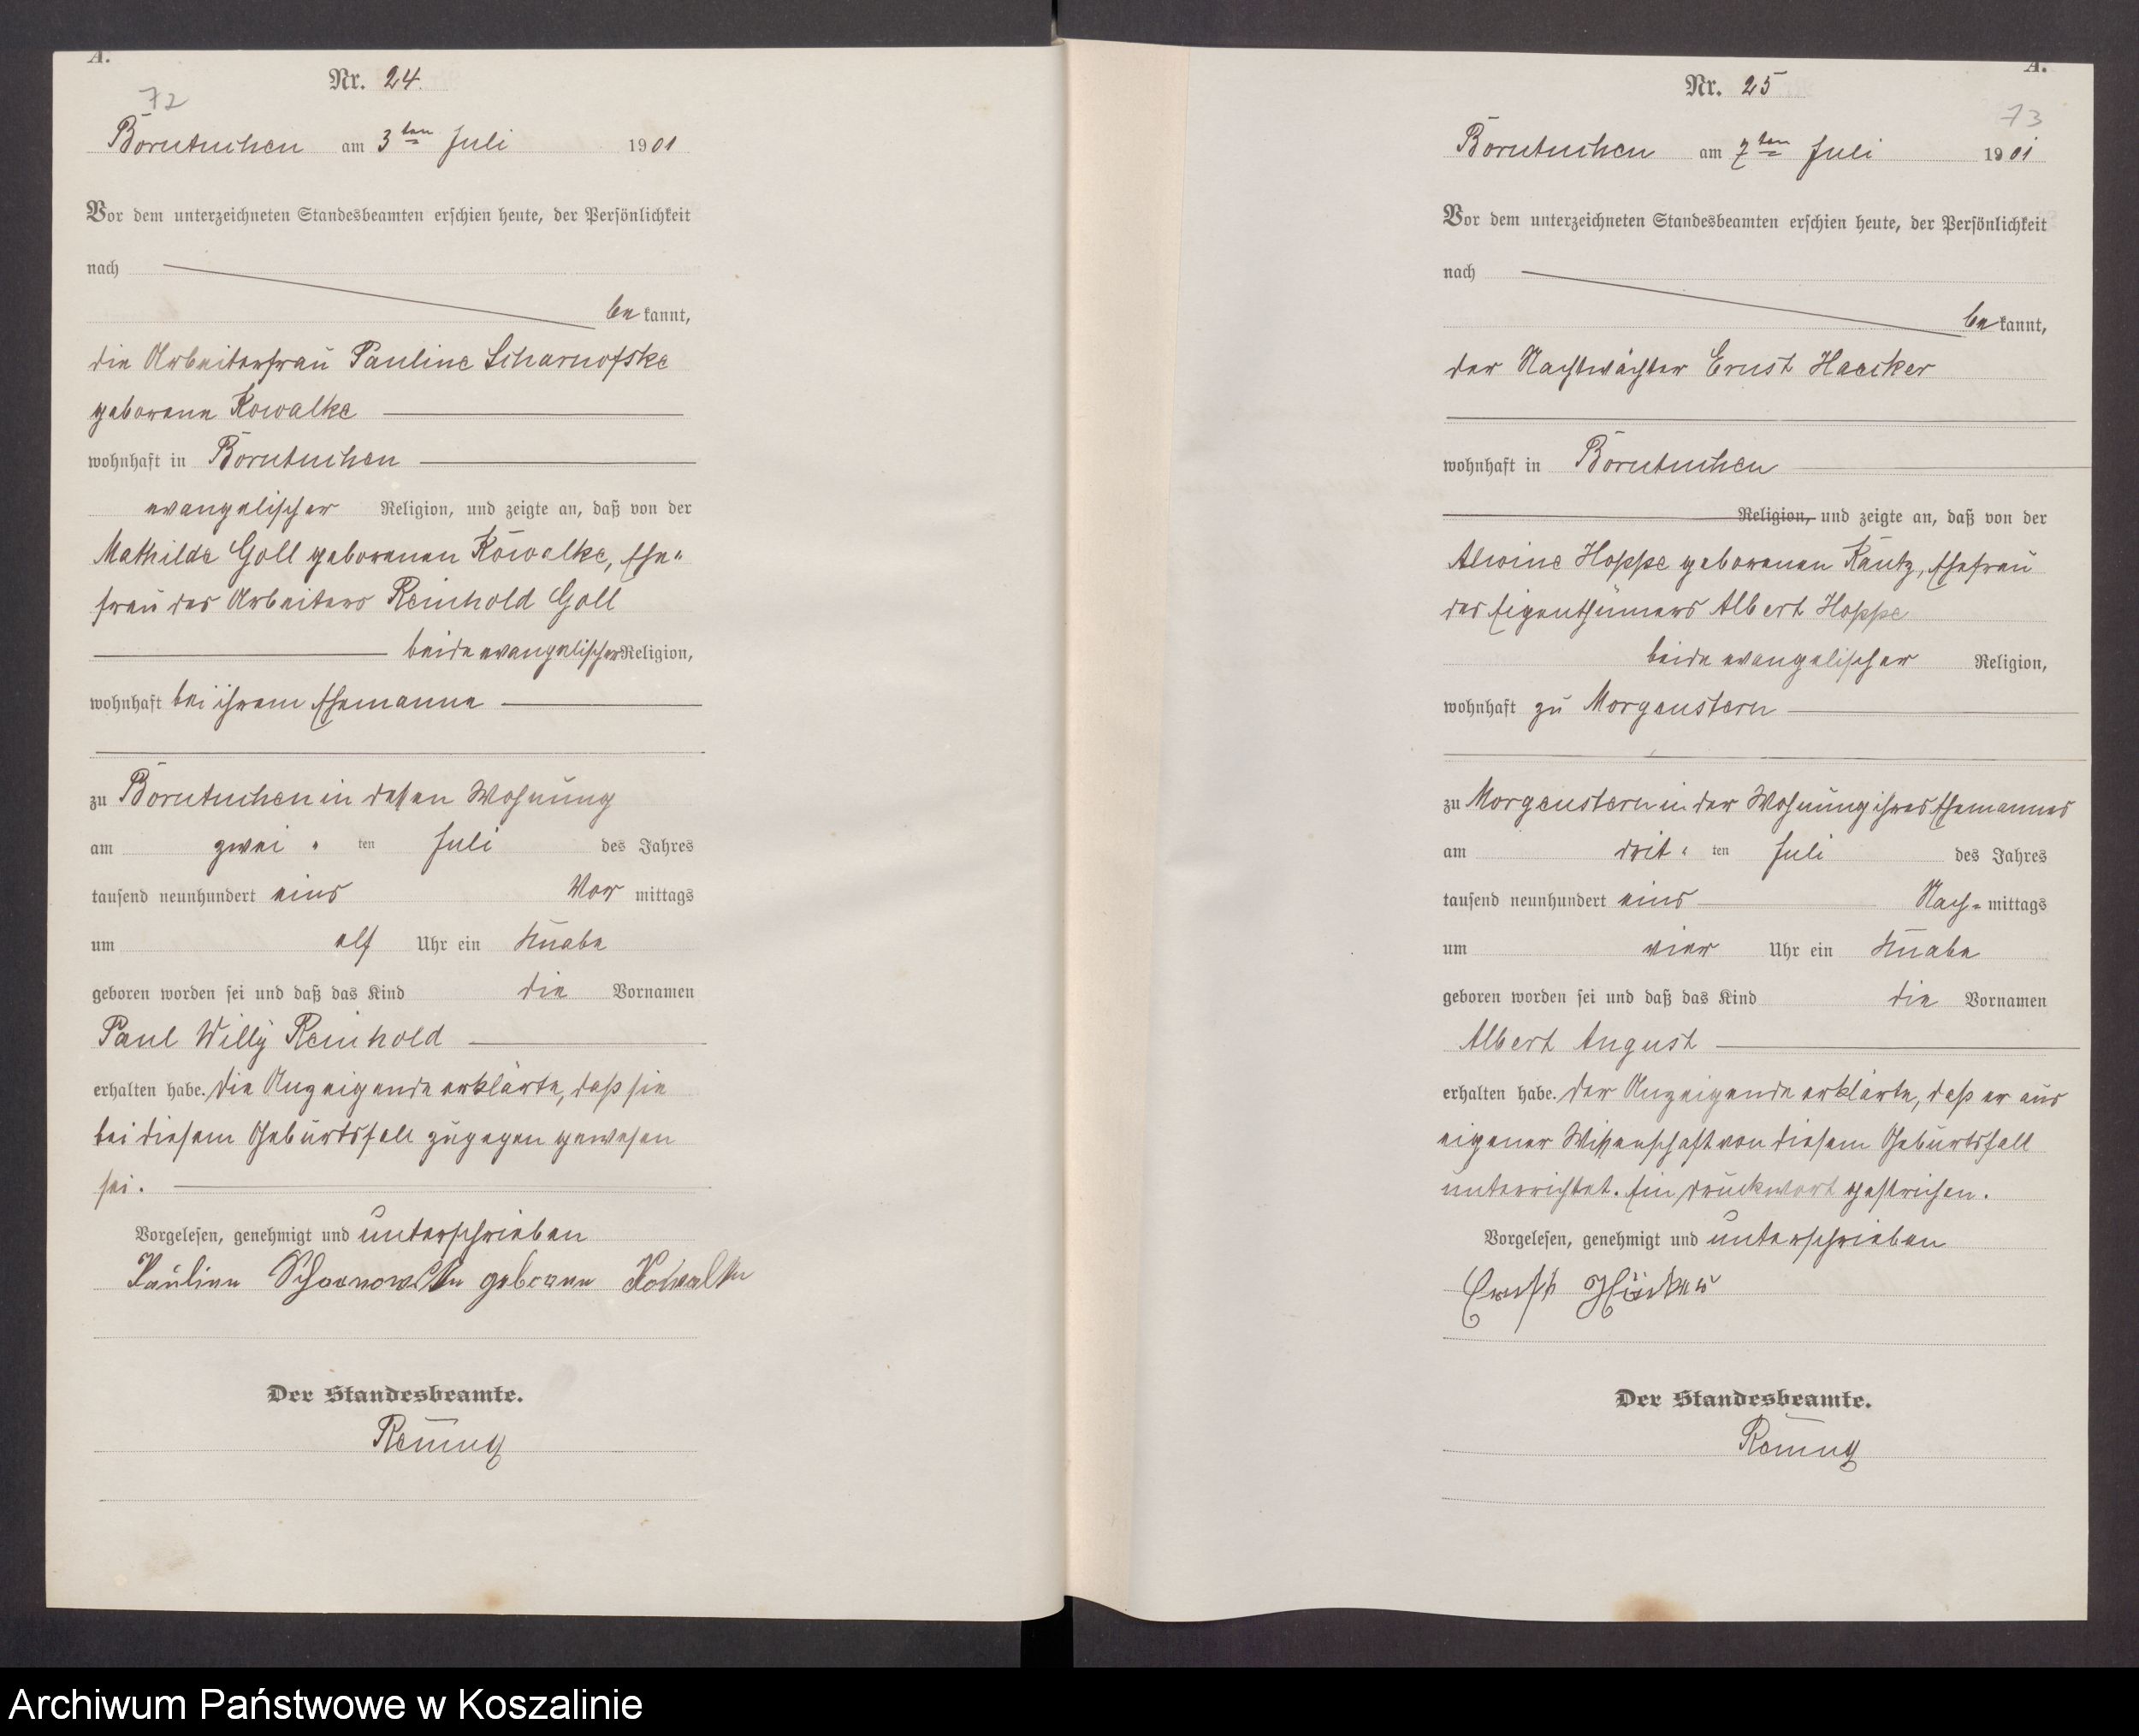 A.
Nr. 24.
72
Borntuchen am 3ten Juli 1901
Vor dem unterzeichneten Standesbeamten erschien heute, der Persönlichkeit
nach
be kannt,
die Arbeiterfrau Pauline Scharnofske
geborene Kowalke
wohnhaft in Borntuchen
evangelischer Religion, und zeigte an, daß von der
Mathilde Goll geborenen Kowalke, Ehe-
frau des Arbeiters Reinhold Goll
beide evangelischer Religion,
wohnhaft bei ihrem Ehemanne
zu Borntuchen in dessen Wohnung
am zwei - ten Juli des Jahres
tausend neunhundert eins Vor mittags
um elf Uhr ein Knabe
geboren worden sei und daß das Kind die Vornamen
Paul Willy Reinhold
erhalten habe. Die Anzeigende erklärte, daß sie
bei diesem Geburtsfall zugegen gewesen
sei.
Vorgelesen, genehmigt und unterschrieben
Pauline Scharnowske geborene Kowalke
Der Standesbeamte.
A.
Nr. 25
73
Borntuchen am 7ten Juli 1901
Vor dem unterzeichneten Standesbeamten erschien heute, der Persönlichkeit
nach
be kannt,
der Nachtwächter Ernst Haecker
wohnhaft in Borntuchen
Religion, und zeigte an, daß von der
Alwine Hoppe geborenen Kautz, Ehefrau
des Eigenthümers Albert Hoppe
beide evangelischer Religion,
wohnhaft zu Morgenstern
zu Morgenstern in der Wohnung ihres Ehemannes
am drit - ten Juli des Jahres
tausend neunhundert eins Nach- mittags
um vier Uhr ein Knabe
geboren worden sei und daß das Kind die Vornamen
Albert August
erhalten habe. Der Anzeigende erklärte, daß er aus
eigener Wissenschaft von diesem Geburtsfall
unterrichtet. Ein Druckwort gestrichen.
Vorgelesen, genehmigt und unterschrieben
Ernst Häcker
Der Standesbeamte.
Archiwum Państwowe w Koszalinie